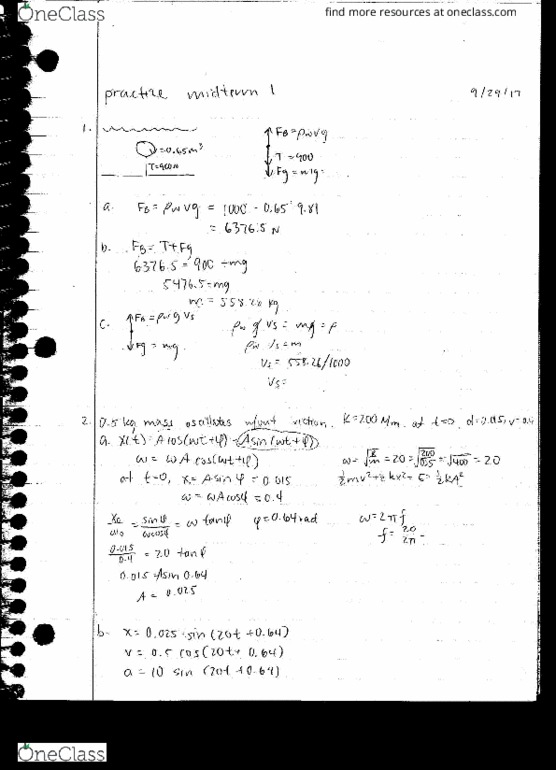 OneClass
find more resources at oneclass.com
practize midterm 1
9/29/17
1.
V=0.65m³
T=900N
FB = ρwVg
T = 900
Fg = mg =
a. FB = ρwVg = 1000 · 0.65 · 9.81
= 6376.5 N
b. FB = T + Fg
6376.5 = 900 + mg
5476.5 = mg
m = 558.26 kg
c. FB = ρwgVs
Fg = mg
ρw g Vs = mg
ρw Vs = m
Vs = 558.26/1000
Vs =
2. 0.5 kg mass oscillates w/out friction. K = 200 N/m. at t=0, d=0.015, v=0.4
a. x(t) = A cos(wt + φ) = A sin(wt + φ)
= wA cos(wt + φ)
at t=0, x = A sin φ = 0.015
= wA cos φ = 0.4
w = √k/m = 20 = √200/0.5 = √400 = 20
½mv² + ½kx² = E = ½kA²
= sin φ / w cos φ
φ = 0.64 rad
0.015/0.4 = 20 tan φ
0.015 = A sin 0.64
A = 0.025
w = 2πf
f = 20/2π =
b. x = 0.025 sin (20t + 0.64)
v = 0.5 cos (20t + 0.64)
a = 10 sin (20t + 0.64)
OneClass